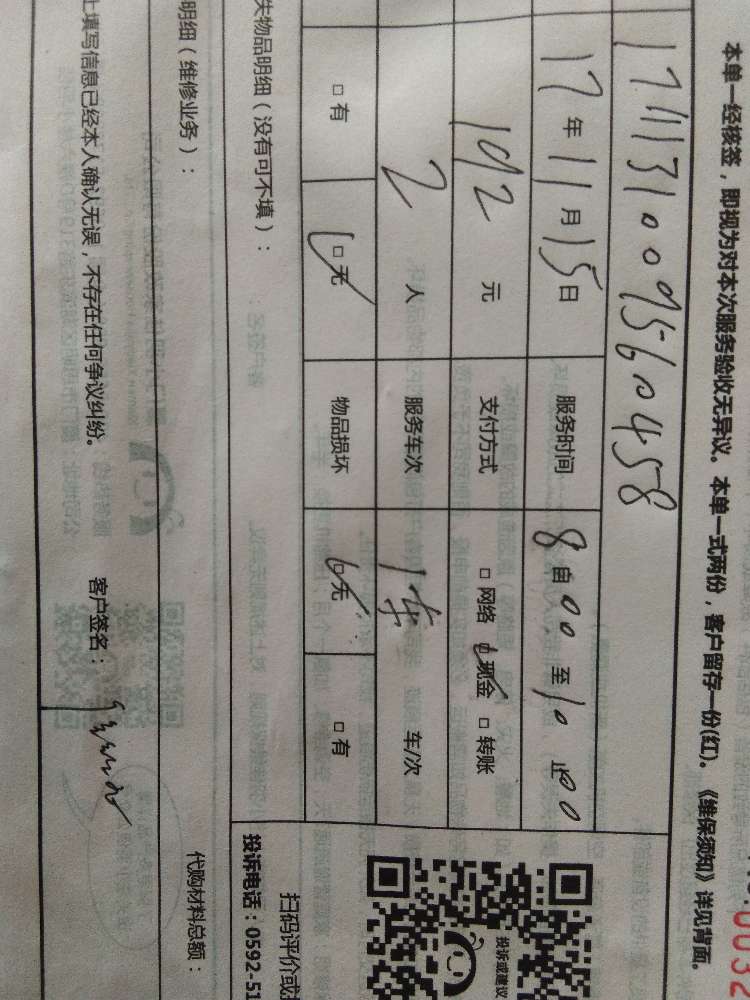 本单一经核签，即视为对本次服务验收无异议。本单一式两份，客户留存一份(红)。《维保须知》详见背面。
0032
1711131009560458
17年11月15日 服务时间 8自00至10止00
192元 支付方式 □网络 □现金 □转账
2人 服务车次 1车 车/次
□有 □无 物品损坏 □无 □有
失物品明细（没有可不填）：
明细（维修业务）：
代购材料总额：
上填写信息已经本人确认无误，不存在任何争议纠纷。 客户签名：
投诉或建议
扫码评价或
投诉电话：0592-51